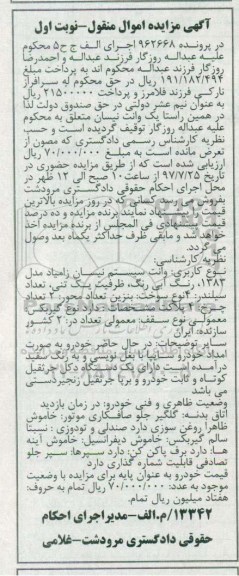 آگهی مزایده اموال منقول-نوبت اول
در پرونده ۹۶۲۶۶۸ اجرای الف ج ح۵ محکوم
علیه عبداله روزگار فرزند عبداله و احمدرضا
روزگار فرزند عبداله محکوم اند به پرداخت مبلغ
۱۹۱/۱۸۲/۴۹۴ ریال در حق محکوم له سرافراز
نارکی فرزند فلامرز و پرداخت ۲۱۵۰۰۰۰۰ ریال
به عنوان نیم عشر دولتی در حق صندوق دولت لذا
در همین راستا یک وانت نیسان متعلق به محکوم
علیه عبداله روزگار توقیف گردیده است و حسب
نظریه کارشناس رسمی دادگستری که مصون از
تعرض مانده است به مبلغ ۷۰/۰۰۰/۰۰۰ ریال
ارزیابی شده است که از طریق مزایده حضوری در
تاریخ ۹۷/۷/۲۵ از ساعت ۱۰ صبح الی ۱۲ ظهر در
محل اجرای احکام حقوقی دادگستری مرودشت
بفروش می رسد کسانی که در روز مزایده بالاترین
قیمت را پیشنهاد نمایند برنده مزایده و ده درصد
قیمت پیشنهادی فی المجلس از برنده مزایده اخذ
خواهد شد و مابقی ظرف حداکثر یکماه بعد وصول
می گردد.
نظریه کارشناسی:
نوع کاربری: وانت سیستم نیسان زامیاد مدل
۱۳۸۳، رنگ آبی رنگ، ظرفیت یک تنی، تعداد
سیلندر: ۴ نوع سوخت: بنزین تعداد محور: ۲ تعداد
چرخ: ۴ پلاک مشخصات دارد نوع گیربکس
معمولی نوع سقف: معمولی تعداد در: ۲ کشور
سازنده: ایران
سایر توضیحات: در حال حاضر خودرو به صورت
امداد خودرو سایپا با بغل نویسی و به رنگ سفید
درآمده است دارای یک دستگاه دکل جرثقیل
کوتاه و ثابت خودرو و برپا جرثقیل زنجیردستی
می باشد
وضعیت ظاهری و فنی خودرو: در زمان بازدید
اتاق بدنه: گلگیر جلو صافکاری موتور: خاموش
ظاهرا روغن سوزی دارد صندلی و تودوزی : نسبتا
سالم گیربکس: خاموش دیفرانسیل: خاموش آینه
ها: دارد برف پاکن کن: دارد سپرها: سپر جلو
تصادفی قابلیت شماره گذاری دارد
قیمت خودرو به عنوان پایه برای مزایده با وضعیت
موجود به عدد: ۷۰/۰۰۰/۰۰۰ ریال تمام به حروف:
هفتاد میلیون ریال تمام.
۱۳۳۴۲/م.الف-مدیراجرای احکام
حقوقی دادگستری مرودشت-غلامی